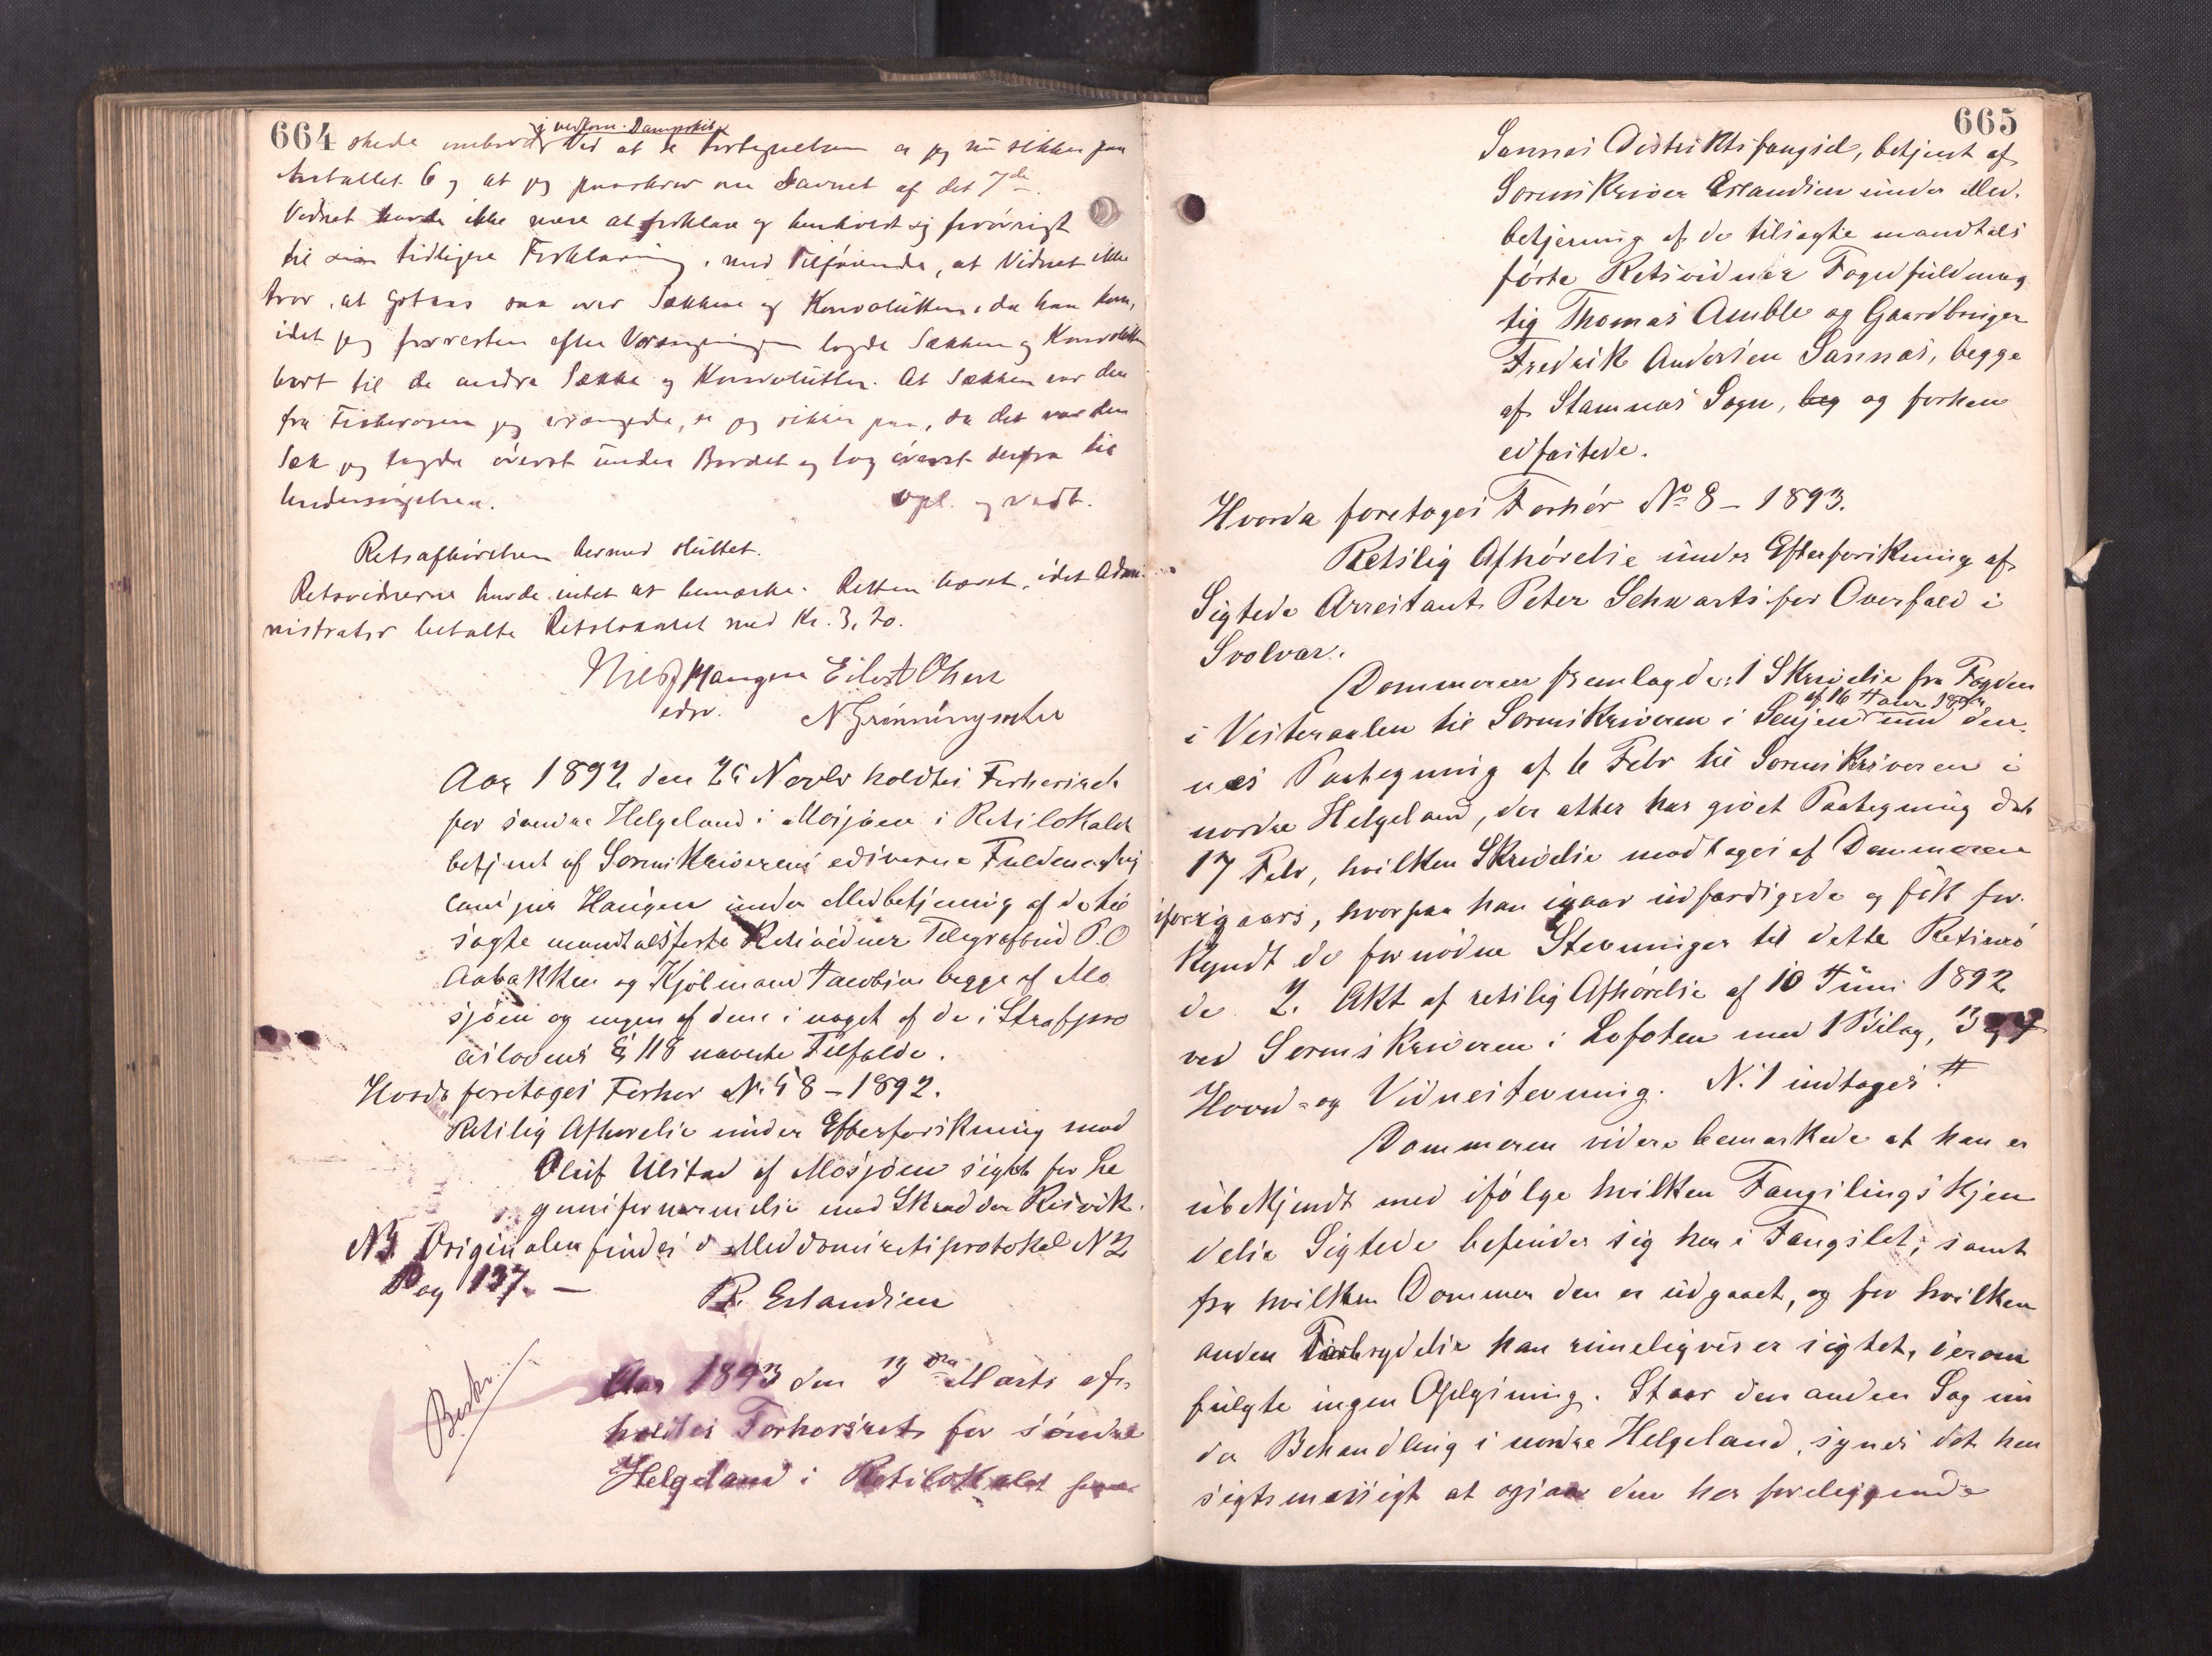 664
i vedkom. Dampskib
skede ombord. Ved at se Fortegnelsen er jeg nu sikker paa
Antallet 6 og at jeg paaskrev om Savnet af det 7de.
Vidnet havde ikke mere at forklare og henholdt sig forøvrigt
til sin tidligere Forklaring, med Tilføiende, at Vidnet ikke
tror, at Gotaas saa over Sækkene og Konvolutten, da han kom,
idet jeg forresten efter Vrængningen lagde Sækken og Konvolutten
bort til de andre Sække og Konvolutter. At Sækken var den
fra Fiskerosen jeg vrængede, er jeg sikker paa, da det var den
Sæk jeg lagde øverst under Bordet og tog øverst derfra til
Undersøgelsen. opl. og vedt.
Retsafhørelsen hermed sluttet.
Retsvidnerne havde intet at bemærke. Retten hævet, idet Admi-
nistrator betalte Retslokalet med Kr. 3,20.
Haugen Eilert Olsen
edsv. N Grønningsæter
Aar 1892 den 25 Novbr holdtes Forhørsret
for søndre Helgeland i Mosjøen i Retslokalet
betjent af Sorenskriverens edsvorne Fuldmægtig
cand jur Haugen under Medbetjening af de til
sagte mandtalsførte Retsvidner Telegrafbud P.O
Aabakken og Kjøbmand Jacobsen begge af Mo
sjøen og ingen af dem i noget af de i Strafpro
ceslovens § 118 nævnte Tilfælde.
Hvorda foretoges Forhør No 58 - 1892.
Retslig Afhørelse under Efterforskning mod
Oluf Ulstad af Mosjøen sigtet for Le
gemsfornærmelse mod Skrædder Risvik.
NB. Originalen findes i Meddomsretsprotokol N 2
Pag 137. —
R. Erlandsen
Beskr.
Aar 1893 den 3die Marts af
holdtes Forhørsret for søndre
Helgeland i Retslokalet
665
Sannæs Distriktsfængsel, betjent af
Sorenskriver Erlandsen under Med-
betjening af de tilsagte mandtals
førte Retsvidner Fogedfuldmæg
tig Thomas Amble og Gaardbruger
Fredrik Andersen Sannæs, begge
af Stamnæs Sogn, beg og forhen
edfæstede.
Hvorda foretoges Forhør No 8 - 1893.
Retslig Afhørelse under Efterforskning af
Sigtede Arrestant Peter Schwarts for Overfald i
Svolvær.
Dommeren fremlagde: 1 Skrivelse fra Fogden
af 16 Janr 1893
i Vesteraalen til Sorenskriveren i Senjen med den-
nes Paategning af 6 Febr til Sorenskriveren i
nordre Helgeland, der atter har givet Paategning dat
17 Febr, hvilken Skrivelse modtoges af Dommeren
iforrigaars, hvorpaa han igaar udfærdigede og fik for-
kyndt de fornødne Stevninger til dette Retsmø
de 2. Akt af retslig Afhørelse af 10 Juni 1892
ved Sorenskriveren i Lofoten med 1 Bilag, 3 og 4
Hoved- og Vidnestevning. N. 1 indtages #
Dommeren videre bemærkede at han er
ubekjendt med ifølge hvilken Fængslingskjen
delse Sigtede befinder sig her i Fængslet, samt
fra hvilken Dommer den er udgaaet, og for hvilken
anden Forbrydelse han rimeligvis er sigtet, derom
fulgte ingen Oplysning. Staar den anden Sag un
der Behandling i nordre Helgeland, synes det hen
sigtsmæssigt at ogsaa den her foreliggende